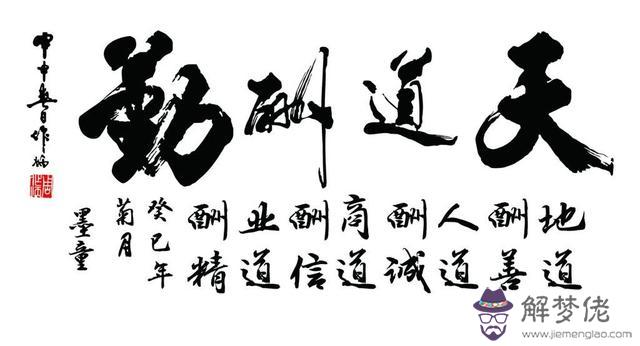 天道酬勤
地道酬善
人道酬誠
商道酬信
业道酬精
癸巳年
菊月
墨童
解梦佬
www.jiemenglao.com